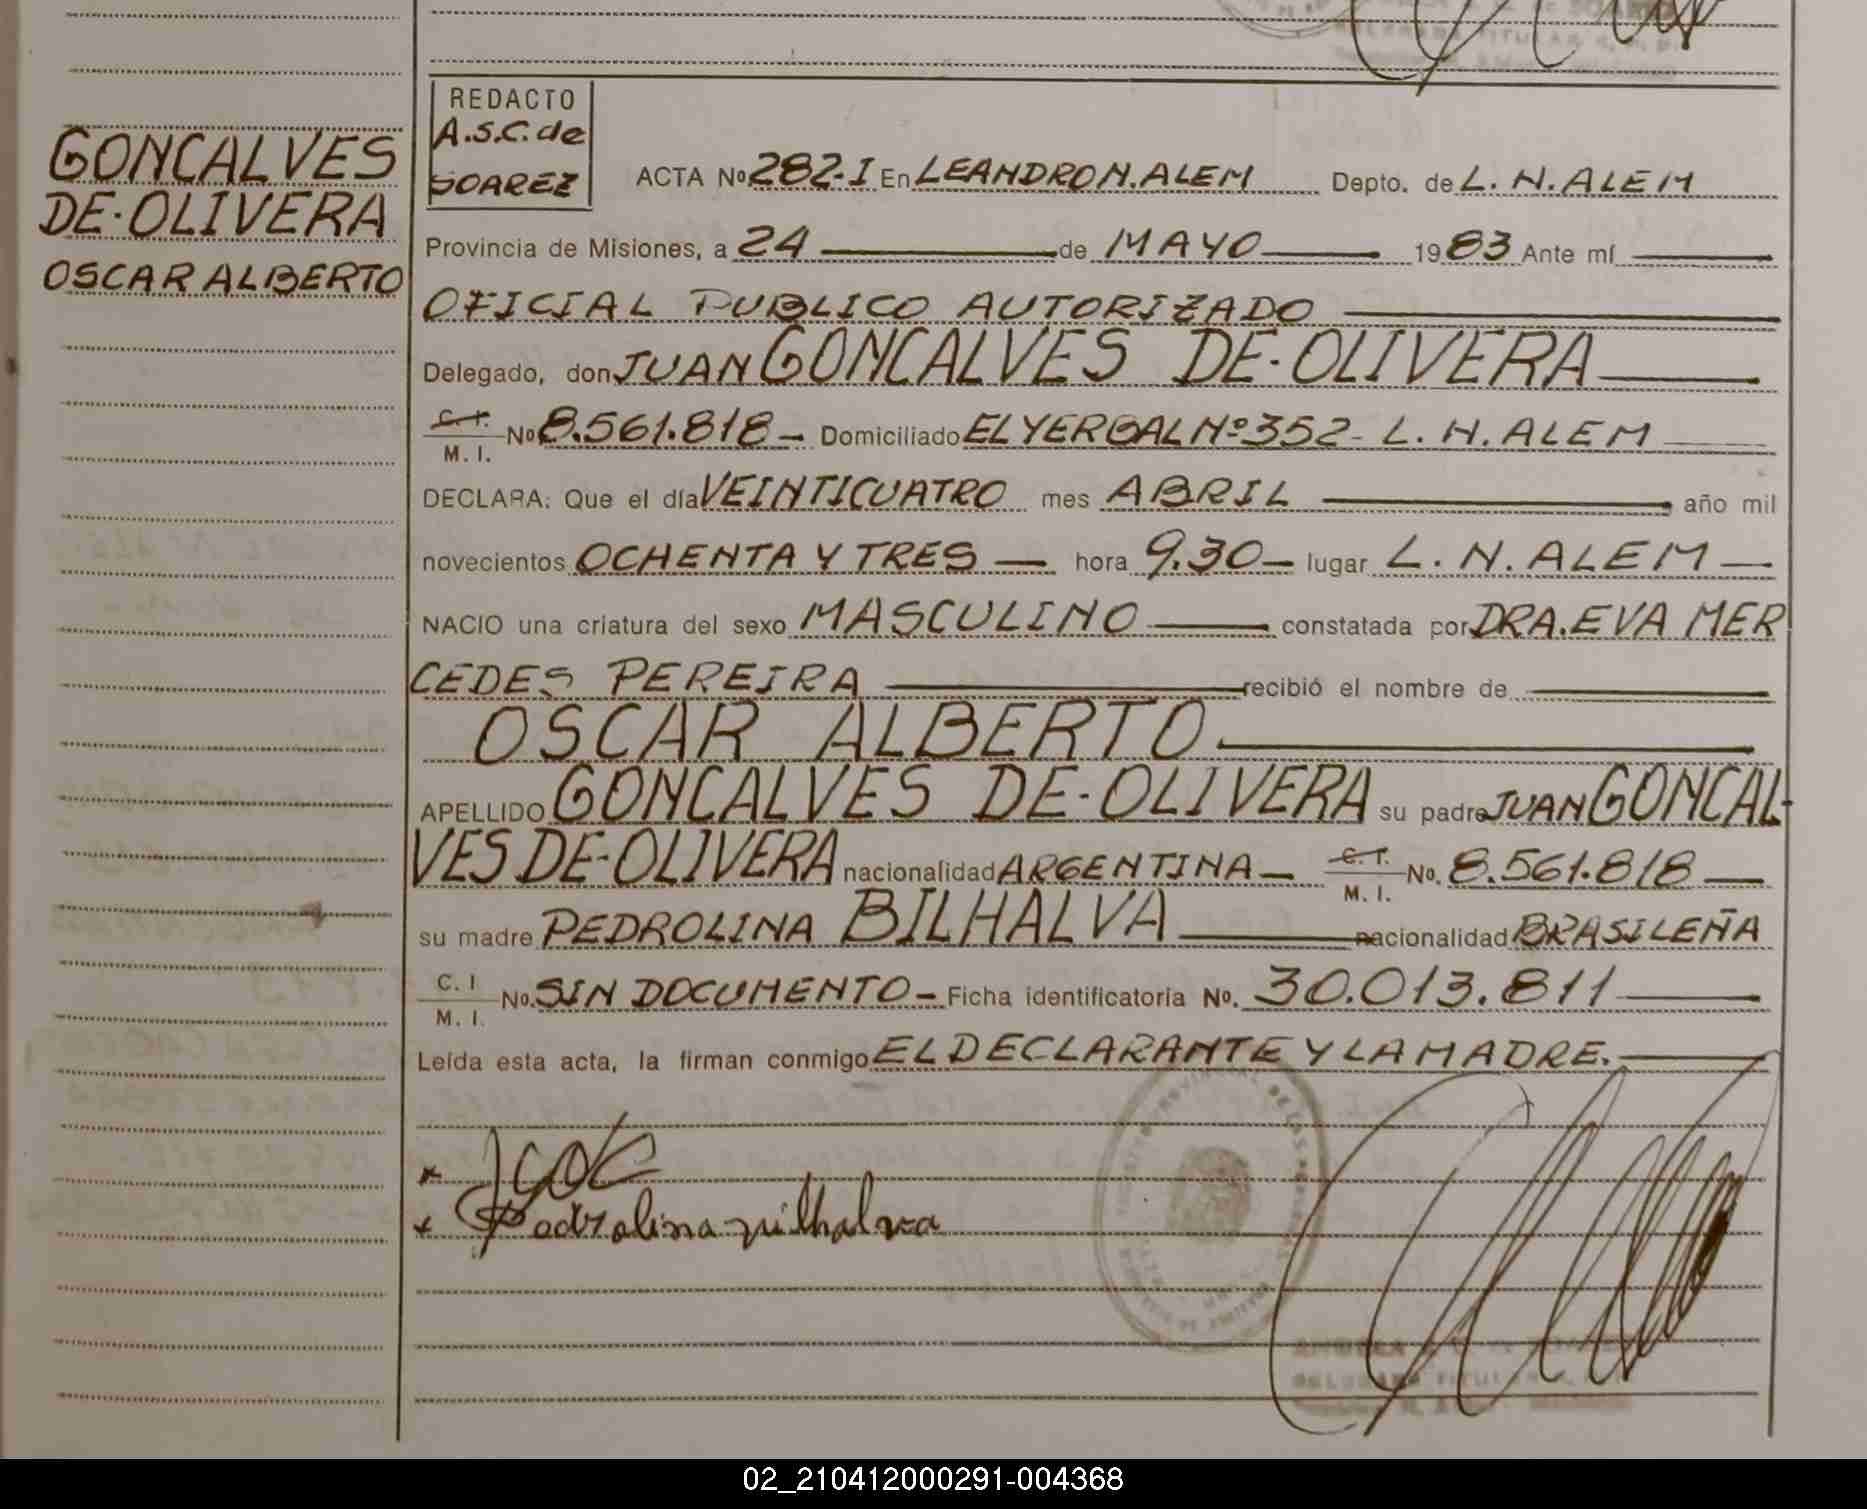 GONCALVES
DE-OLIVERA
OSCAR ALBERTO
REDACTO
A.S.C. de
SOAREZ
ACTA Nº 282-I En LEANDRO N. ALEM Depto. de L. N. ALEM
Provincia de Misiones, a 24 de MAYO 1983 Ante mí
OFICIAL PUBLICO AUTORIZADO
Delegado, don JUAN GONCALVES DE-OLIVERA
C.I.
M. I. Nº 8.561.818 - Domiciliado EL YERBAL Nº 352 - L. N. ALEM
DECLARA: Que el día VEINTICUATRO mes ABRIL año mil
novecientos OCHENTA Y TRES hora 9.30 lugar L. N. ALEM
NACIO una criatura del sexo MASCULINO constatada por DRA. EVA MER
CEDES PEREIRA recibió el nombre de
OSCAR ALBERTO
APELLIDO GONCALVES DE-OLIVERA su padre JUAN GONCAL-
VES DE-OLIVERA nacionalidad ARGENTINA
C.I.
M. I. No. 8.561.818
su madre PEDROLINA BILHALVA nacionalidad BRASILEÑA
C. I
M. I. No. SIN DOCUMENTO - Ficha identificatoria No. 30.013.811
Leída esta acta, la firman conmigo EL DECLARANTE Y LA MADRE.
Pedrolina
DELEGADA TITULAR
02_210412000291-004368